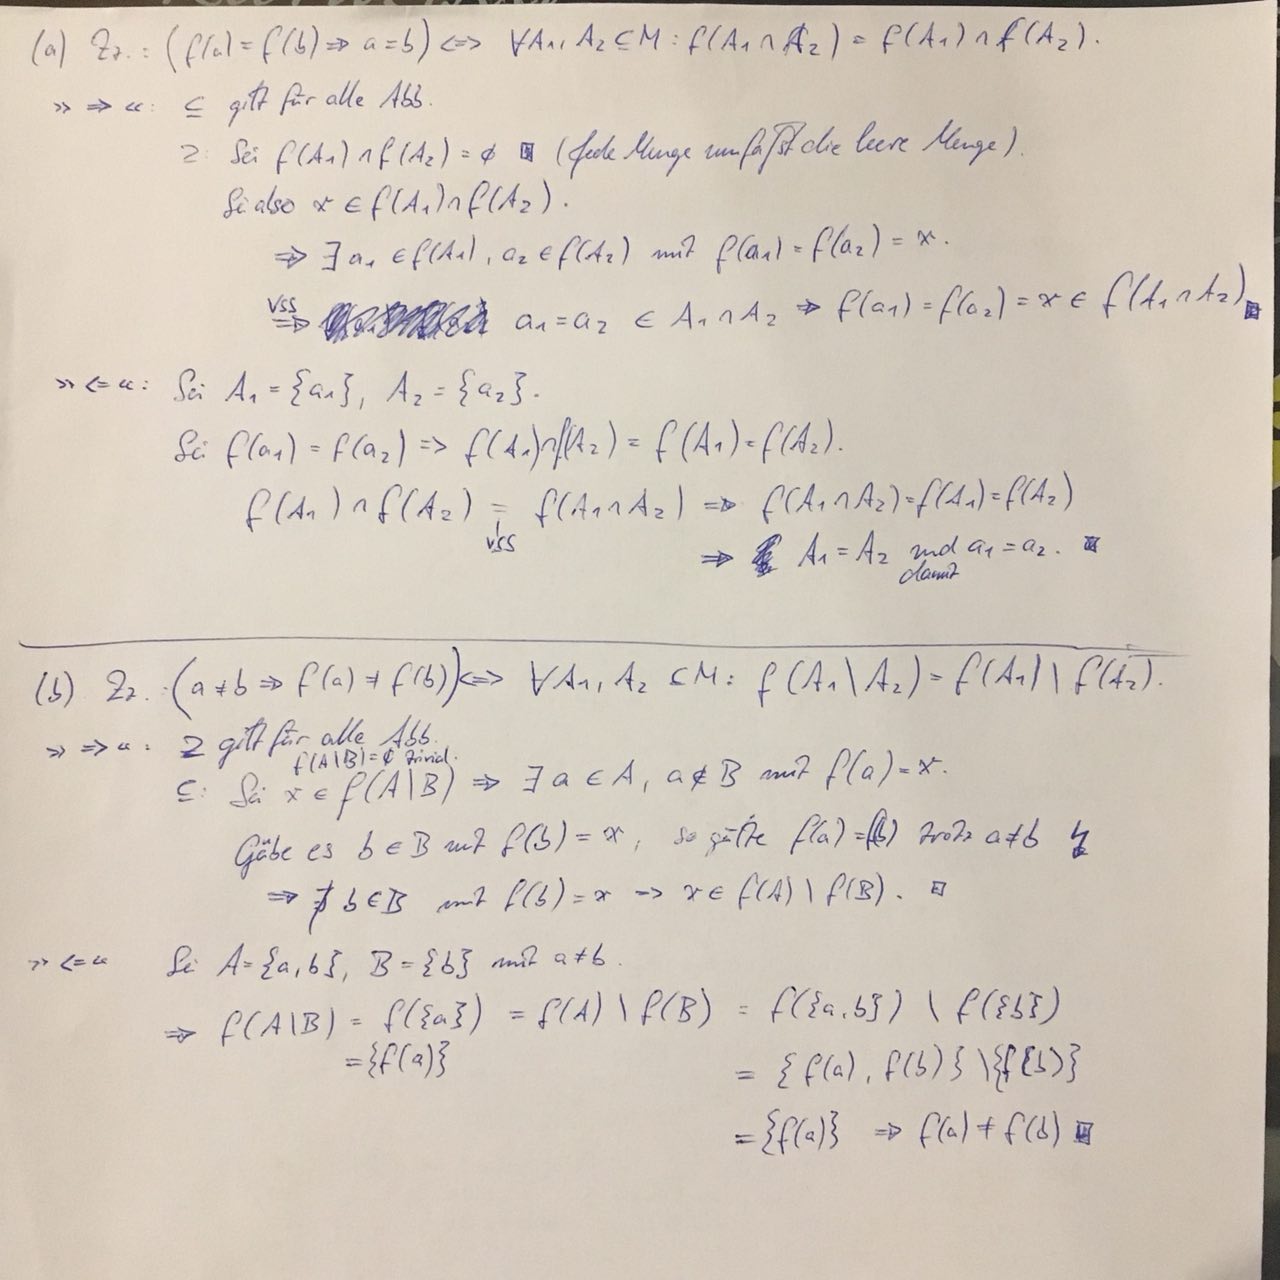 (a) Zz.: (f(a) = f(b) ⇒ a = b) ⇔ ∀A₁, A₂ ⊆ M : f(A₁ ∩ A₂) = f(A₁) ∩ f(A₂).
» ⇒ «: ⊆ gilt für alle Abb.
⊇: Sei f(A₁) ∩ f(A₂) = ∅ □ (jede Menge umfaßt die leere Menge).
Sei also x ∈ f(A₁) ∩ f(A₂).
⇒ ∃ a₁ ∈ f(A₁), a₂ ∈ f(A₂) mit f(a₁) = f(a₂) = x.
VSS ⇒ a₁ = a₂ ∈ A₁ ∩ A₂ ⇒ f(a₁) = f(a₂) = x ∈ f(A₁ ∩ A₂) □
» <= «: Sei A₁ = {a₁}, A₂ = {a₂}.
Sei f(a₁) = f(a₂) => f(A₁) ∩ f(A₂) = f(A₁) = f(A₂).
f(A₁) ∩ f(A₂) = f(A₁ ∩ A₂) ⇒ f(A₁ ∩ A₂) = f(A₁) = f(A₂)
VSS
⇒ A₁ = A₂ und damit a₁ = a₂. □
(b) Zz.: (a ≠ b ⇒ f(a) ≠ f(b)) <=> ∀A₁, A₂ ⊆ M : f(A₁ \ A₂) = f(A₁) \ f(A₂).
» => «: ⊇ gilt für alle Abb.
f(A\B) = ∅ trivial.
⊆: Sei x ∈ f(A\B) ⇒ ∃ a ∈ A, a ∉ B mit f(a) = x.
Gäbe es b ∈ B mit f(b) = x, so gälte f(a) = f(b) trotz a ≠ b ↯
⇒ ∄ b ∈ B mit f(b) = x → x ∈ f(A) \ f(B). □
» <= « Sei A = {a, b}, B = {b} mit a ≠ b.
⇒ f(A\B) = f({a}) = f(A) \ f(B) = f({a, b}) \ f({b})
= {f(a)} = {f(a), f(b)} \ {f(b)}
= {f(a)} ⇒ f(a) ≠ f(b) □